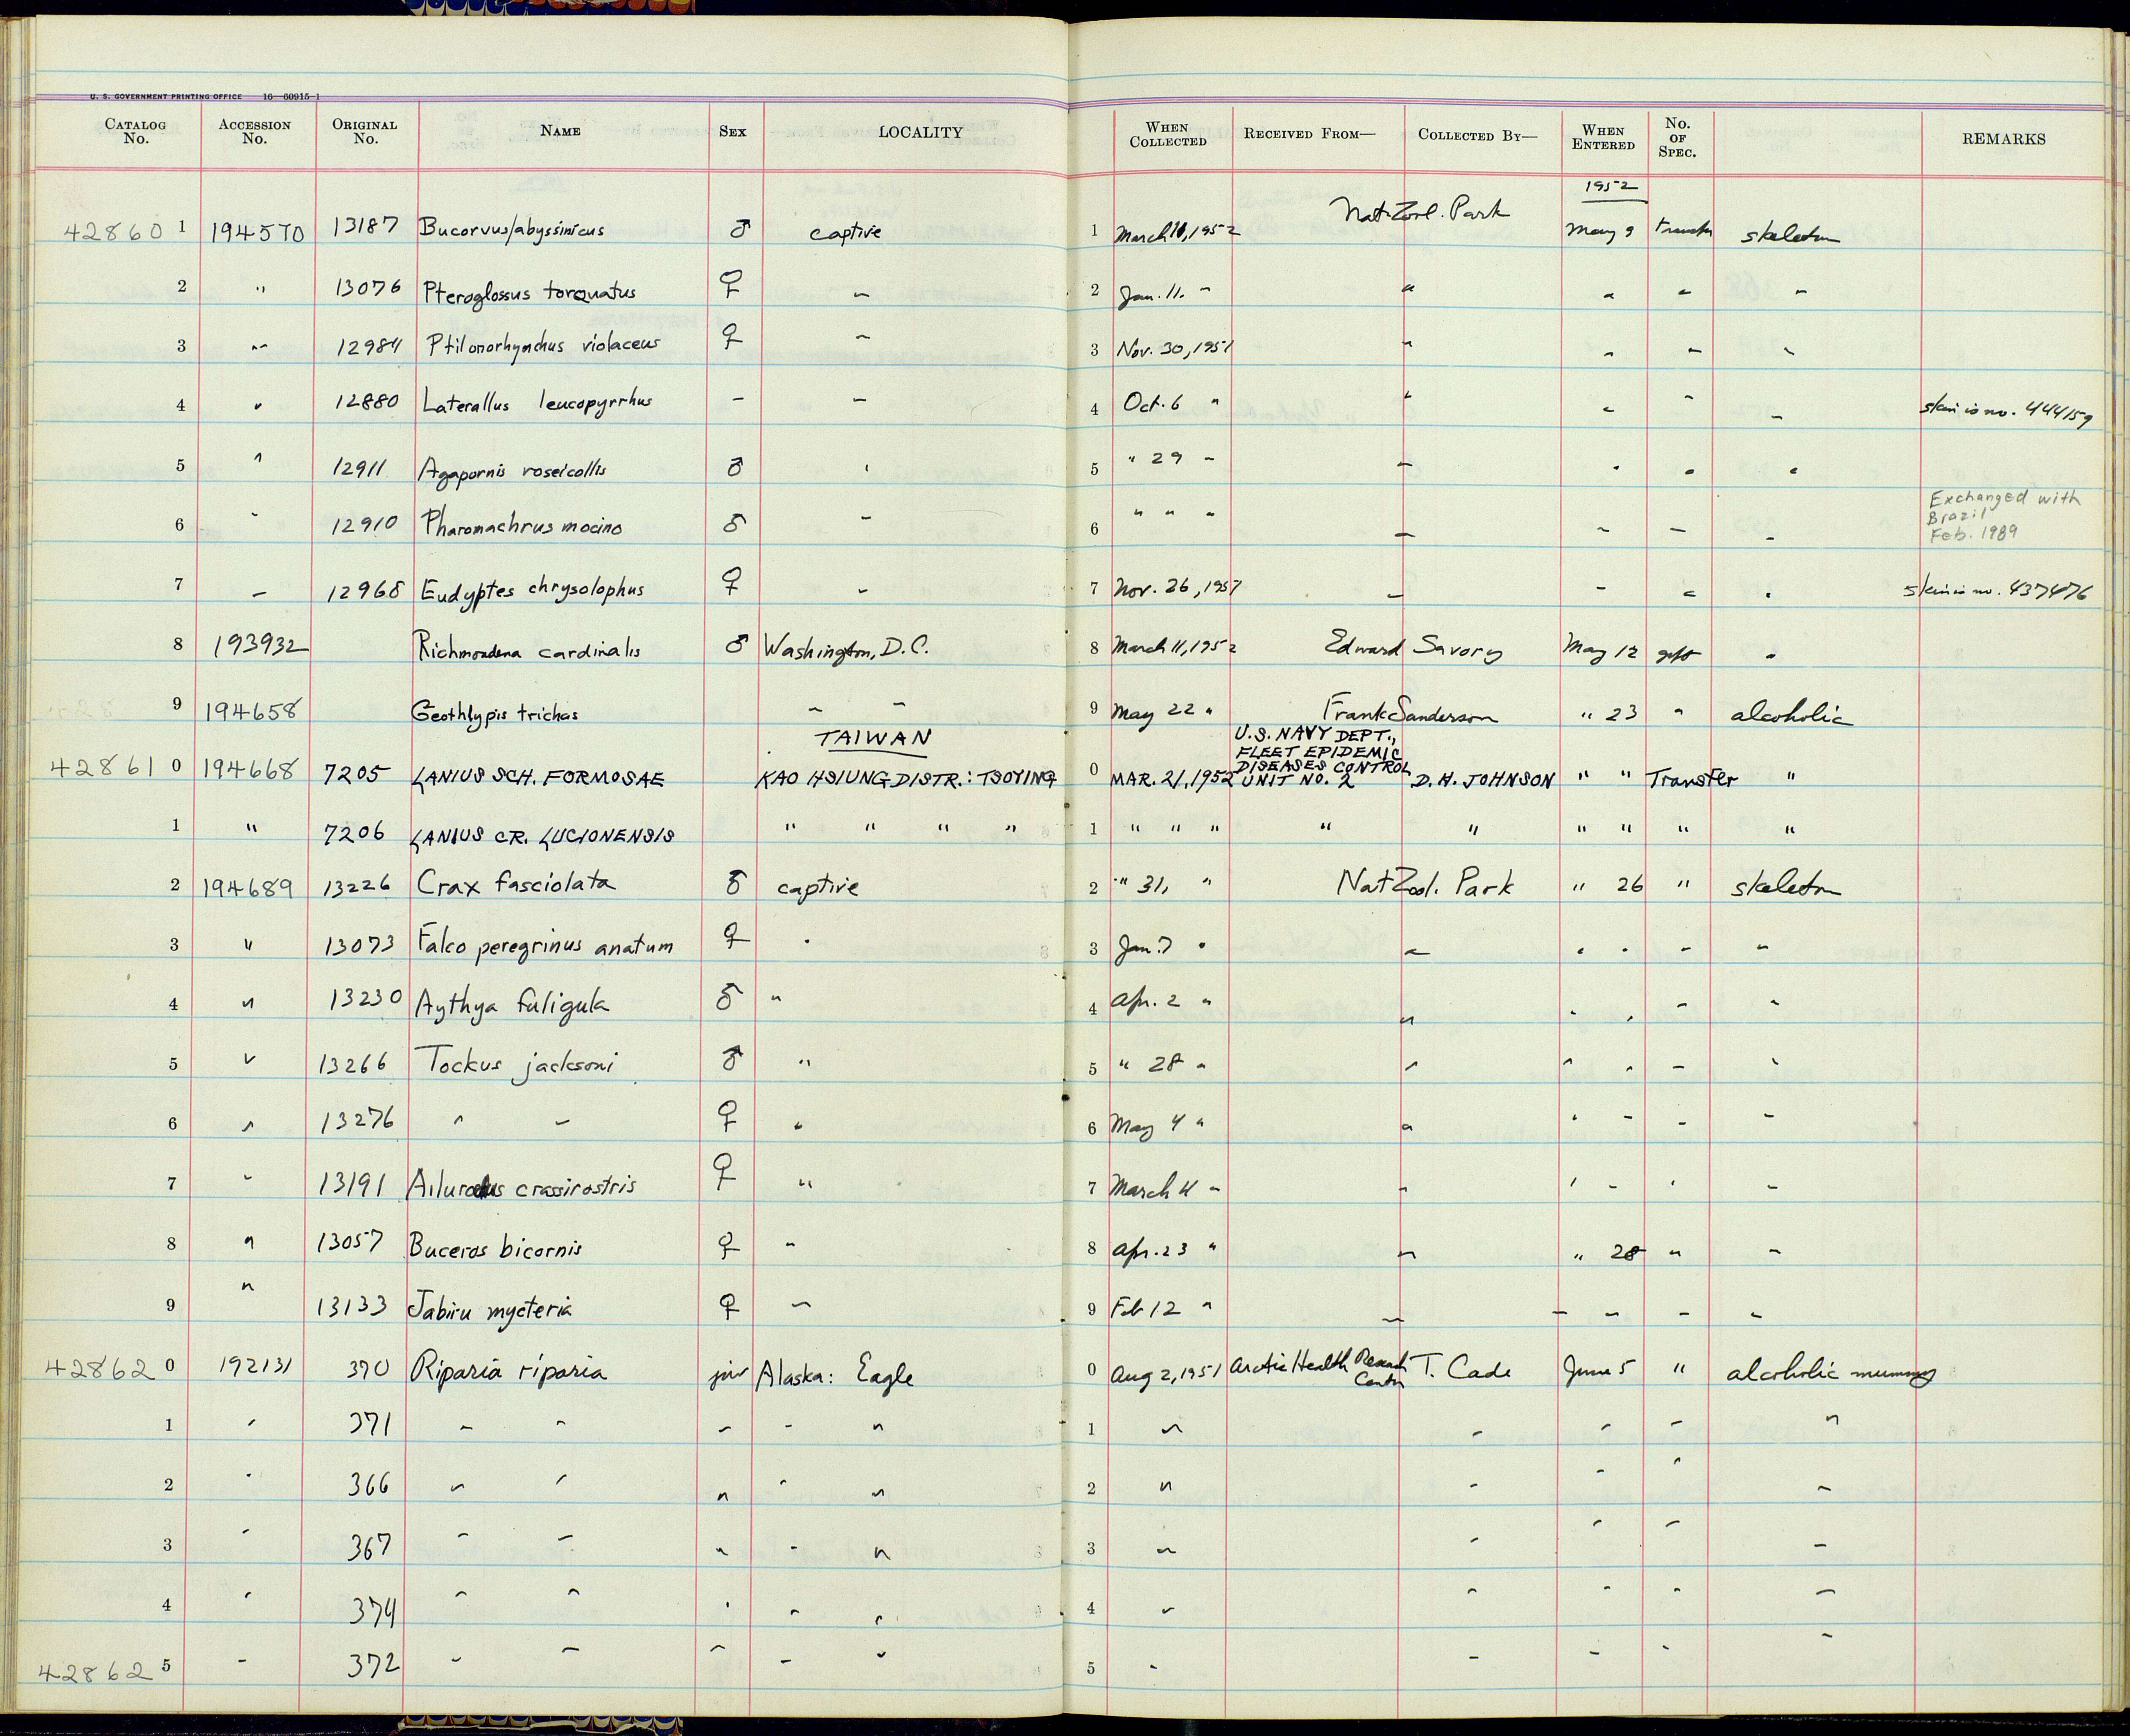 U. S. GOVERNMENT PRINTING OFFICE 16—60915-1
CATALOG No. ACCESSION No. ORIGINAL No. NAME SEX LOCALITY WHEN COLLECTED RECEIVED FROM— COLLECTED BY— WHEN ENTERED No. OF SPEC. REMARKS
1952
42860 1 194570 13187 Bucorvus/abyssinicus ♂ captive 1 March 11, 1952 Nat. Zool. Park May 9 transfer skeleton
2 " 13076 Pteroglossus torquatus ♀ " 2 Jan. 11. " " " " "
3 " 12984 Ptilonorhynchus violaceus ♀ " 3 Nov. 30, 1951 " " " "
4 " 12880 Laterallus leucopyrrhus – " 4 Oct. 6 " " " " " skin is no. 444159
5 " 12911 Agapornis roseicollis ♂ " 5 " 29 " " " " "
6 " 12910 Pharomachrus mocino ♂ " 6 " " " " " " " Exchanged with
Brazil
Feb. 1989
7 " 12968 Eudyptes chrysolophus ♀ " 7 Nov. 26, 1951 " " " " skin is no. 437476
8 193932 Richmondena cardinalis ♂ Washington, D.C. 8 March 11, 1952 Edward Savory May 12 gift "
9 194658 Geothlypis trichas " " 9 May 22 " Frank Sanderson " 23 " alcoholic
TAIWAN
U.S. NAVY DEPT.,
FLEET EPIDEMIC
DISEASES CONTROL
42861 0 194668 7205 LANIUS SCH. FORMOSAE KAO HSIUNG DISTR.: TSOYING 0 MAR. 21, 1952 UNIT NO. 2 D. H. JOHNSON " " Transfer "
1 " 7206 LANIUS CR. LUCIONENSIS " " " " 1 " " " " " " " " "
2 194689 13226 Crax fasciolata ♂ captive 2 " 31, " Nat Zool. Park " 26 " skeleton
3 " 13073 Falco peregrinus anatum ♀ " 3 Jan. 7 " " " " " "
4 " 13230 Aythya fuligula ♂ " 4 Apr. 2 " " " " " "
5 " 13266 Tockus jacksoni ♂ " 5 " 28 " " " " " "
6 " 13276 " " ♀ " 6 May 4 " " " " " "
7 " 13191 Ailuroedus crassirostris ♀ " 7 March 4 " " " " " "
8 " 13057 Buceros bicornis ♀ " 8 Apr. 23 " " " 28 " "
9 " 13133 Jabiru mycteria ♀ " 9 Feb 12 " " " " " "
42862 0 192131 370 Riparia riparia juv Alaska: Eagle 0 Aug 2, 1951 Arctic Health Research Center T. Cade June 5 " alcoholic mummy
1 " 371 " " " " " 1 " " " " "
2 " 366 " " " " " 2 " " " " "
3 " 367 " " " " " 3 " " " " "
4 " 374 " " " " " 4 " " " " "
42862 5 " 372 " " " " " 5 " " " " "